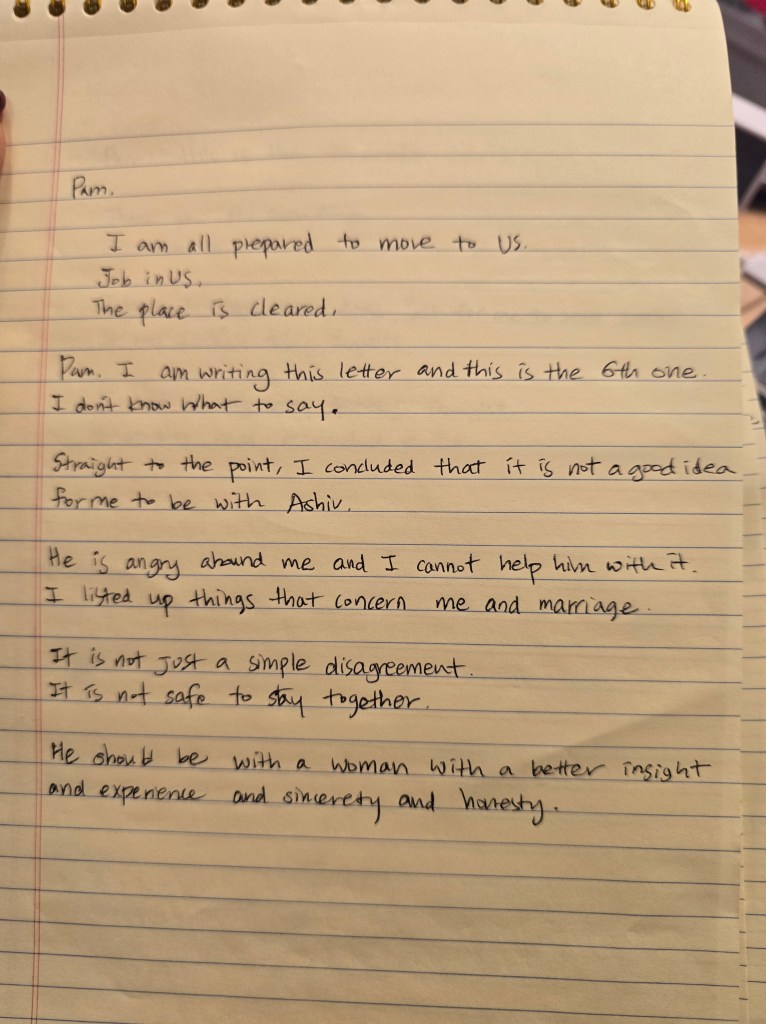 Pam.
I am all prepared to move to US.
Job in US.
The place is cleared.
Pam. I am writing this letter and this is the 6th one.
I don't know what to say.
Straight to the point, I concluded that it is not a good idea
for me to be with Ashiv.
He is angry around me and I cannot help him with it.
I listed up things that concern me and marriage.
It is not just a simple disagreement.
It is not safe to stay together.
He should be with a woman with a better insight
and experience and sincerety and honesty.